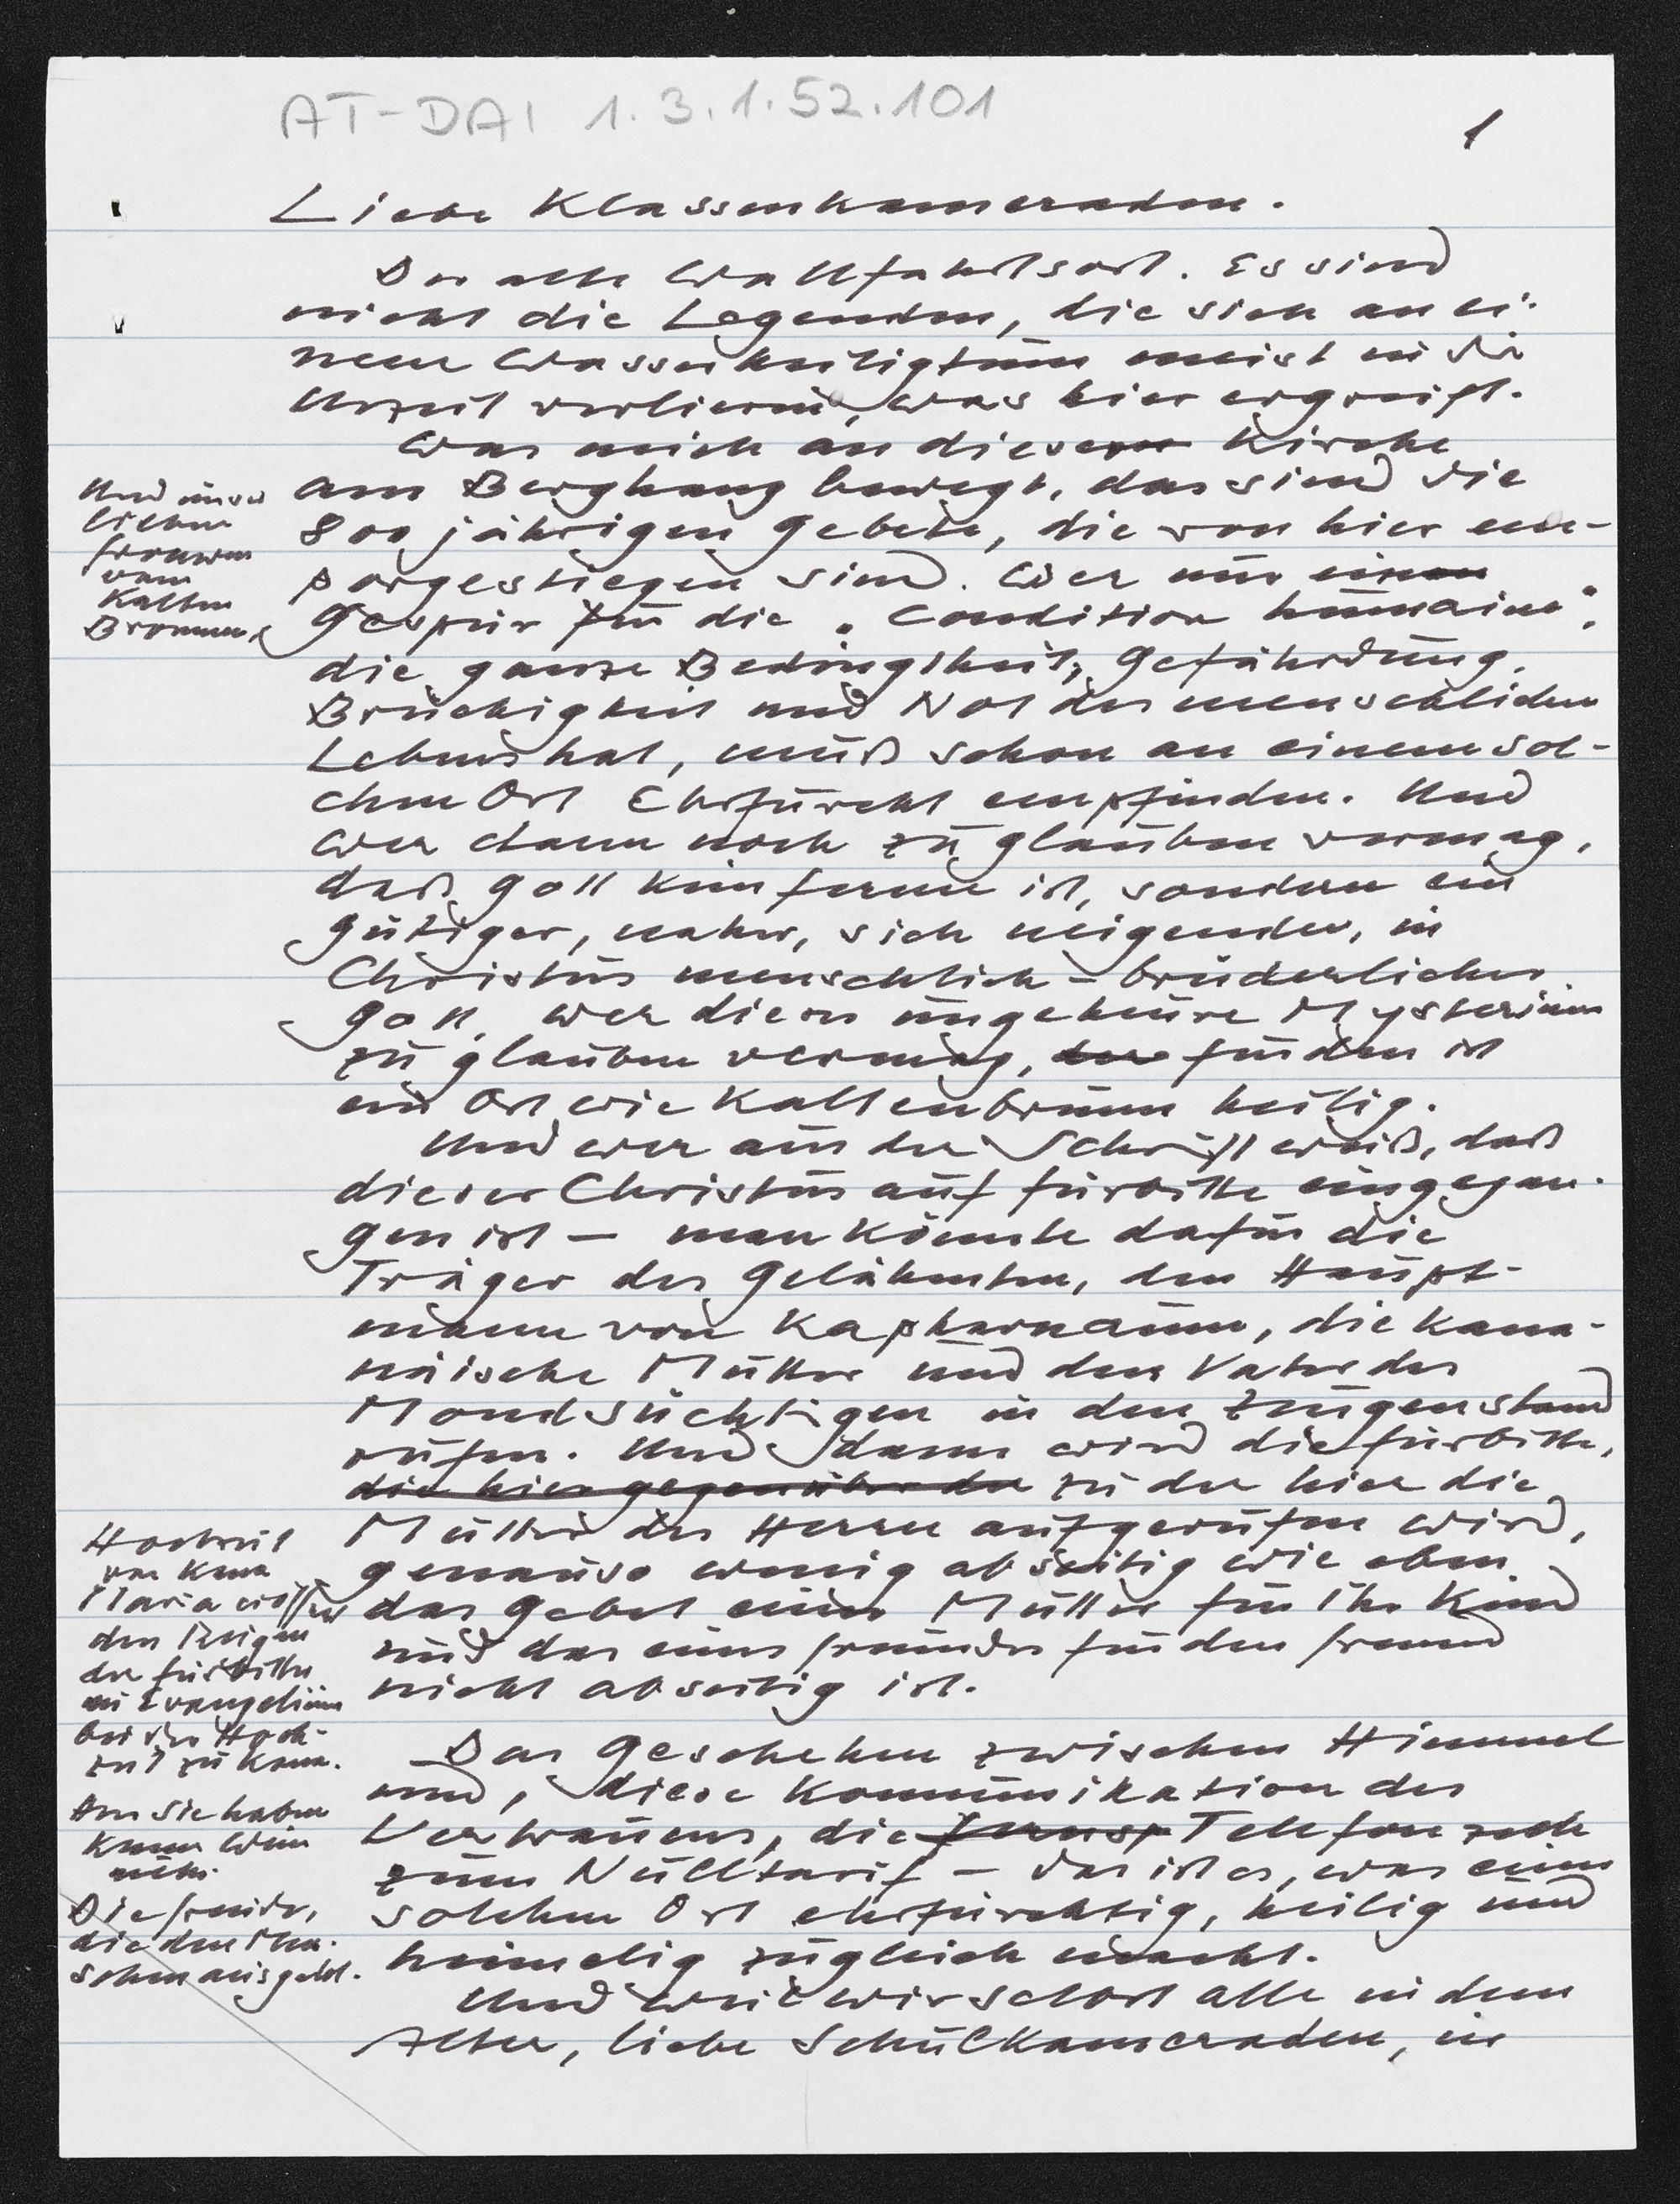 AT-DAI 1.3.1.52.101
1
Liebe Klassenkameraden.
Der alte Wallfahrtsort. Es sind
nicht die Legenden, die sich an ei-
nem Wasserheiligtum meist in die
Urzeit verlieren, was hier ergreift.
Was mich an dieser Kirche
am Berghang bewegt, das sind die
800 jährigen Gebete, die von hier em-
porgestiegen sind. Wer nur einen
Gespür für die „Condition humaine“,
die ganze Bedingtheit, Gefährdung,
Brüchigkeit und Not des menschlichen
Lebens hat, muß schon an einem sol-
chen Ort Ehrfurcht empfinden. Und
wer dann noch zu glauben vermag,
daß Gott kein ferner ist, sondern ein
gütiger, naher, sich neigender, in
Christus menschlich-brüderlicher
Gott, wer dieses ungeheure Mysterium
zu glauben vermag, für den ist
ein Ort wie Kaltenbrunn heilig.
Und wer aus der Schrift weiß, daß
dieser Christus auf Fürbitte eingegan-
gen ist – man könnte dafür die
Träger des Gelähmten, den Haupt-
mann von Kapharnaum, die kana-
näische Mutter und den Vater des
Mondsüchtigen in den Zeugenstand
rufen. Und dann wird die Fürbitte,
die hier gegenüber der zu der hier die
Mutter des Herrn aufgerufen wird,
genauso wenig abseitig wie eben
das Gebet einer Mutter für Ihr Kind
und das eines Freundes für den Freund
nicht abseitig ist.
Das Geschehen zwischen Himmel
und, diese Kommunikation des
Vertrauens, die Telefon
zum Nulltarif – das ist es, was einen
solchen Ort ehrfürchtig, heilig und
heimelig zugleich macht.
Und weil wir schon alle in dem
Alter, liebe Schulkameraden, in
Und unser
lieben
Frouwen
vom
Kalten
Bronnen
Hochzeit
von Kana
Maria eröffnet
den Reigen
der Fürbitten
im Evangelium
bei der Hoch-
zeit zu Kana.
Sie haben
keinen Wein
mehr.
Die Freude,
die den Men-
schen ausgeht.